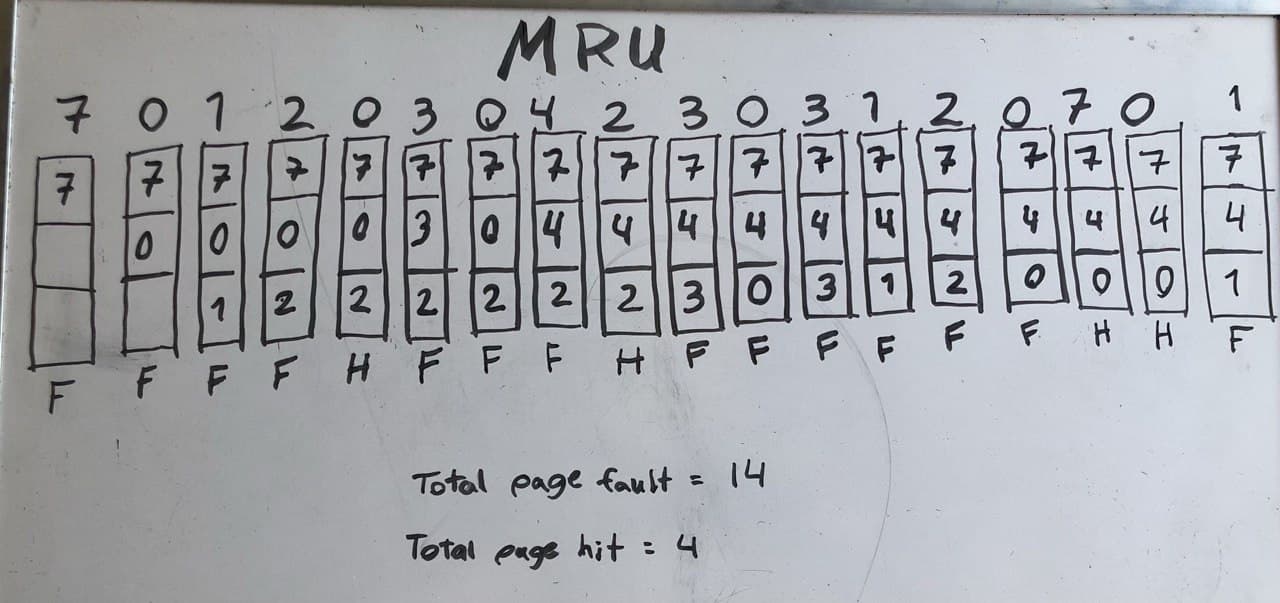 MRU
7 0 1 2 0 3 0 4 2 3 0 3 1 2 0 7 0 1
7 7 7 7 7 7 7 7 7 7 7 7 7 7 7 7 7 7
0 0 0 0 3 0 4 4 4 4 4 4 4 4 4 4 4
1 2 2 2 2 2 2 3 0 3 1 2 0 0 0 1
F F F F H F F F H F F F F F F H H F
Total page fault = 14
Total page hit = 4